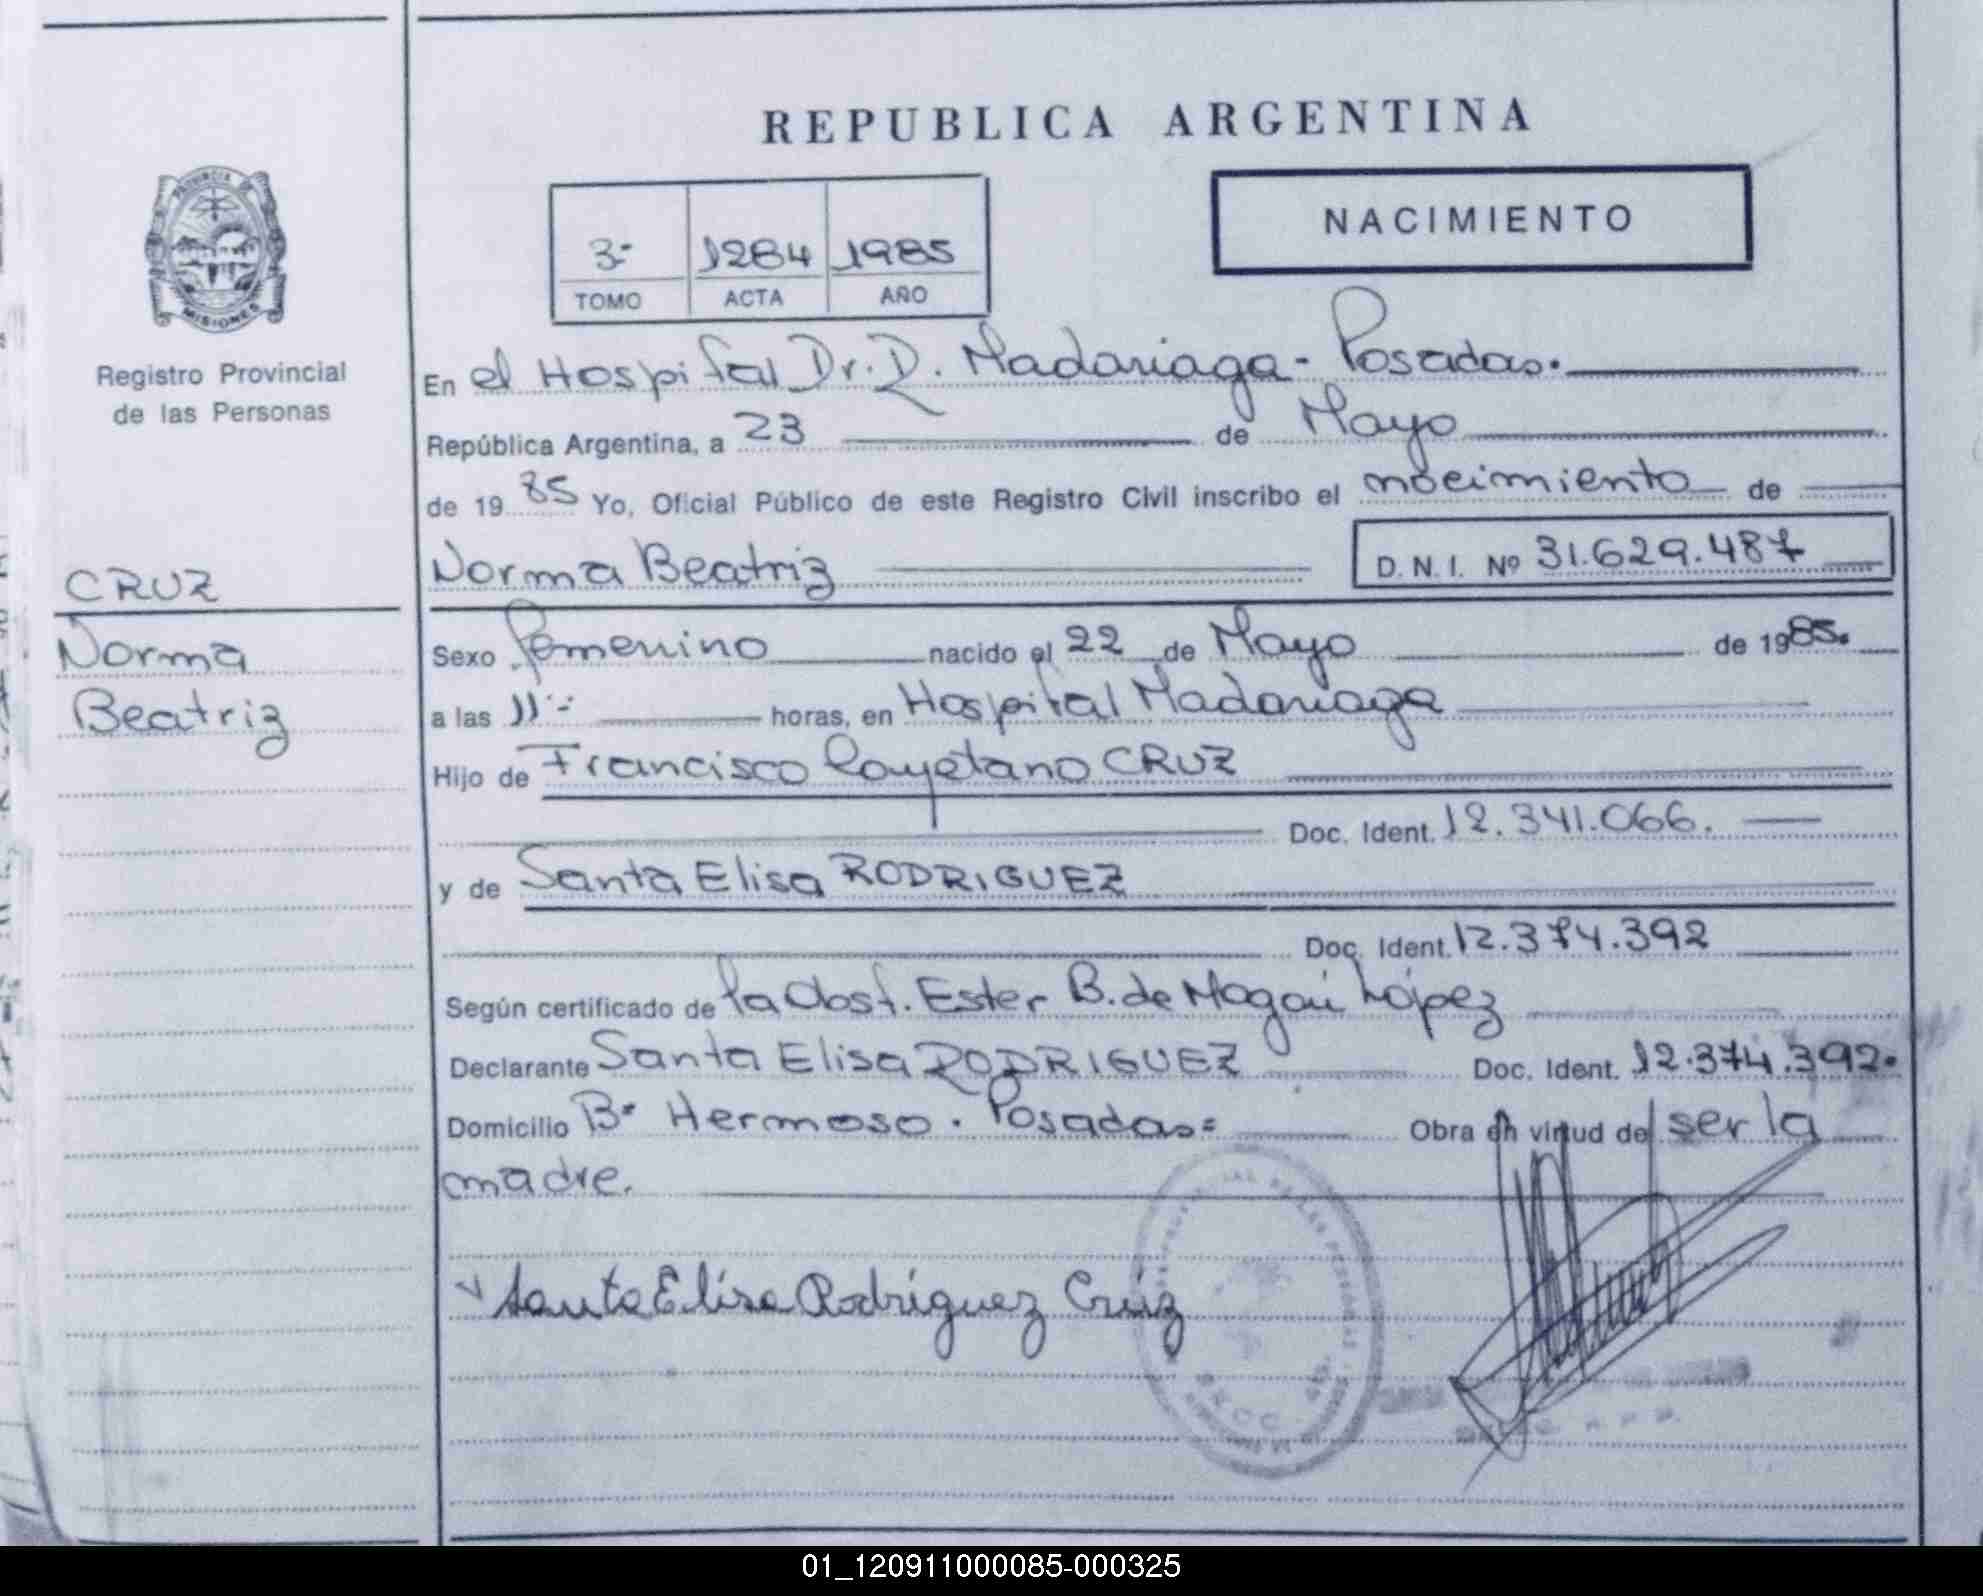 REPUBLICA ARGENTINA
PROVINCIA DE
MISIONES
Registro Provincial
de las Personas
3- 1284 1985
TOMO ACTA AÑO
NACIMIENTO
En el Hospital Dr. R. Madariaga - Posadas.
República Argentina, a 23 de Mayo
de 1985 Yo, Oficial Público de este Registro Civil inscribo el nacimiento de
Norma Beatriz D. N. I. Nº 31.629.487
CRUZ
Norma
Beatriz
Sexo femenino nacido el 22 de Mayo de 1985.
a las 11 horas, en Hospital Madariaga
Hijo de Francisco Cayetano CRUZ
Doc. Ident. 12.341.066.
y de Santa Elisa RODRIGUEZ
Doc. Ident. 12.374.392
Según certificado de la Obst. Ester B. de López
Declarante Santa Elisa RODRIGUEZ Doc. Ident. 12.374.392.
Domicilio Bº Hermoso. Posadas= Obra en virtud de ser la
madre.
Santa Elisa Rodríguez Cruz
01_120911000085-000325